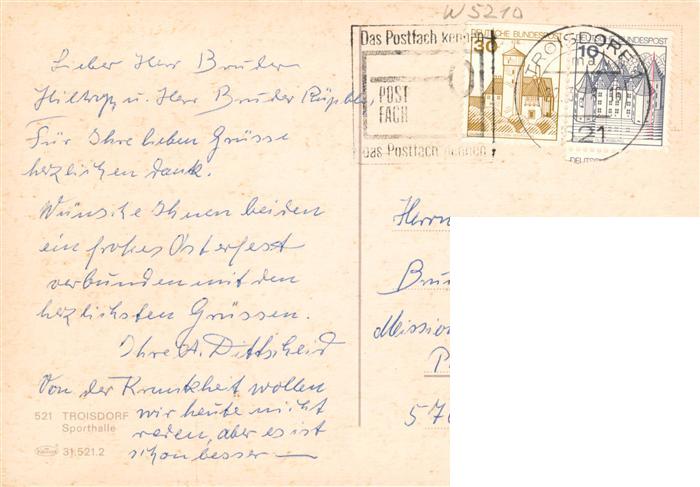 W 5210
Das Postfach kennen
POST
FACH
das Postfach nennen
30
DEUTSCHE BUNDESPOST
TROISDORF 1
521
10
DEUTSCHE BUNDESPOST
DEUTSC
Lieber Herr Bruder
u. Herr Bruder
Für Ihre lieben Grüsse
herzlichen Dank.
Wünsche Ihnen beiden
ein frohes Osterfest
verbunden mit den
herzlichsten Grüssen.
Ihre A. Dittscheid
Von der Krankheit wollen
wir heute nicht
reden, aber es ist
schon besser —
521 TROISDORF
Sporthalle
31.521.2
Herrn
Bru
Mission
P
570